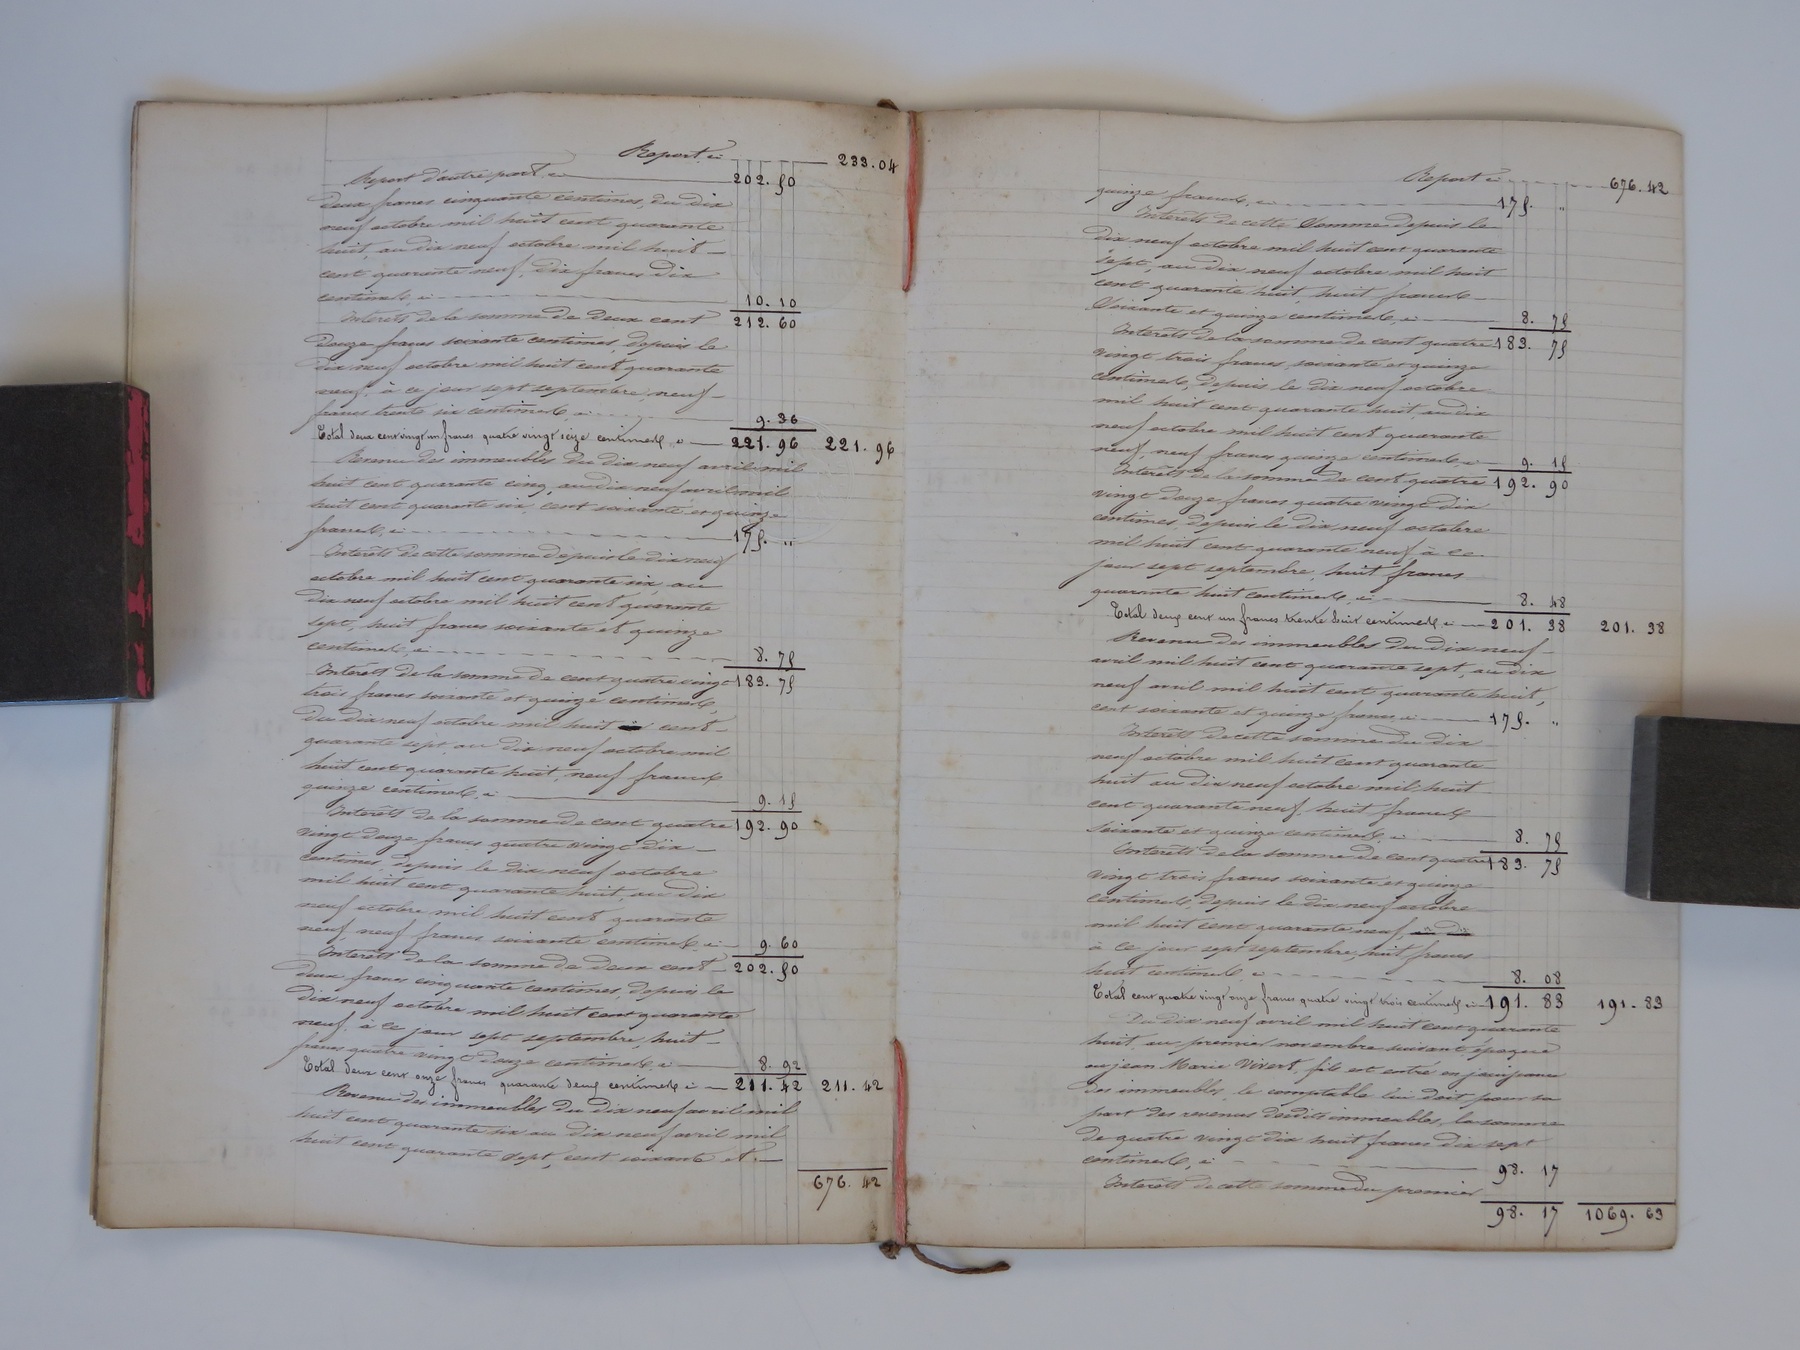 Report ci 233.04
Report d'autre part ci 202.50
deux francs cinquante centimes, du dix
neuf octobre mil huit cent quarante
huit, au dix neuf octobre mil huit
cent quarante neuf, dix francs dix
centimes, ci 10.10
Intérêts de la somme de deux cent 212.60
douze francs soixante centimes, depuis le
dix neuf octobre mil huit cent quarante
neuf, à ce jour sept septembre, neuf
francs trente six centimes, ci 9.36
Total deux cent vingt un francs quatre vingt seize centimes ci 221.96 221.96
Revenu des immeubles du dix neuf avril mil
huit cent quarante cinq, au dix neuf avril mil
huit cent quarante six, cent soixante et quinze
francs, ci 175. "
Intérêts de cette somme depuis le dix neuf
octobre mil huit cent quarante six, au
dix neuf octobre mil huit cent quarante
sept, huit francs soixante et quinze
centimes, ci 8.75
Intérêts de la somme de cent quatre vingt 183.75
trois francs soixante et quinze centimes,
du dix neuf octobre mil huit cent
quarante sept, au dix neuf octobre mil
huit cent quarante huit, neuf francs
quinze centimes, ci 9.15
Intérêts de la somme de cent quatre 192.90
vingt douze francs quatre vingt dix
centimes, depuis le dix neuf octobre
mil huit cent quarante huit, au dix
neuf octobre mil huit cent quarante
neuf neuf francs soixante centimes, ci 9.60
Intérêts de la somme de deux cent 202.50
deux francs cinquante centimes, depuis le
dix neuf octobre mil huit cent quarante
neuf, à ce jour sept septembre, huit
francs quatre vingt douze centimes, ci 8.92
Total deux cent onze francs quarante deux centimes ci 211.42 211.42
Revenu des immeubles du dix neuf avril mil
huit cent quarante six au dix neuf avril mil
huit cent quarante sept, cent soixante et
676.42
Report ci 676.42
quinze francs, ci 175. "
Intérêts de cette Somme depuis le
dix neuf octobre mil huit cent quarante
sept, au dix neuf octobre mil huit
cent quarante huit, huit francs
Soixante et quinze centimes, ci 8.75
Intérêts de la somme de cent quatre 183.75
vingt trois francs, soixante et quinze
centimes, depuis le dix neuf octobre
mil huit cent quarante huit, au dix
neuf octobre mil huit cent quarante
neuf, neuf francs quinze centimes, ci 9.15
Intérêts de la somme de cent quatre 192.90
vingt douze francs quatre vingt dix
centimes, depuis le dix neuf octobre
mil huit cent quarante neuf à ce
jour sept septembre, huit francs
quarante huit centimes, ci 8.48
Total deux cent un francs trente huit centimes ci 201.38 201.38
Revenu des immeubles du dix neuf
avril mil huit cent quarante sept, au dix
neuf avril mil huit cent quarante huit,
cent soixante et quinze francs, ci 175. "
Intérêts de cette somme du dix
neuf octobre mil huit cent quarante
huit au dix neuf octobre mil huit
cent quarante neuf, huit francs
soixante et quinze centimes, ci 8.75
Intérêts de la somme de cent quatre 183.75
vingt trois francs soixante et quinze
centimes, depuis le dix neuf octobre
mil huit cent quarante neuf au dix
à ce jour sept septembre, huit francs
huit centimes ci 8.08
Total cent quatre vingt onze francs quatre vingt trois centimes, ci 191.83 191.83
Du dix neuf avril mil huit cent quarante
huit, au premier novembre suivant époque
où Jean Marie Vivert, fils est entré en jouissance
des immeubles, le comptable lui doit pour sa
part des revenus desdits immeubles, la somme
de quatre vingt dix huit francs dix sept
centimes, ci 98.17
Intérêts de cette somme du premier
98.17 1069.63